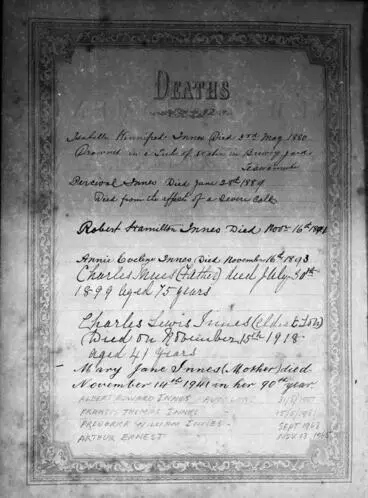 DEATHS
Isabella Winnifred Innes Died 3rd May 1880
Drowned in a Tub of water in Brewery yard
Te Awamutu
Percival Innes Died June 28th 1889
Died from the effect of a Severe Cold
Robert Hamilton Innes Died Novr 16th
Annie Evelyne Innes Died November 16th 1893
Charles Innes (Father) died July 30th
1899 aged 75 years
Charles Lewis Innes (eldest Son)
Died on November 15th 1918
aged 41 years
Mary Jane Innes (Mother) died
November 14th 1941 in her 90th year.
ALBERT HOWARD INNES
FRANCIS THOMAS INNES
FREDERICK WILLIAM INNES - SEPT 1963
ARTHUR ERNEST NOV 13 1965